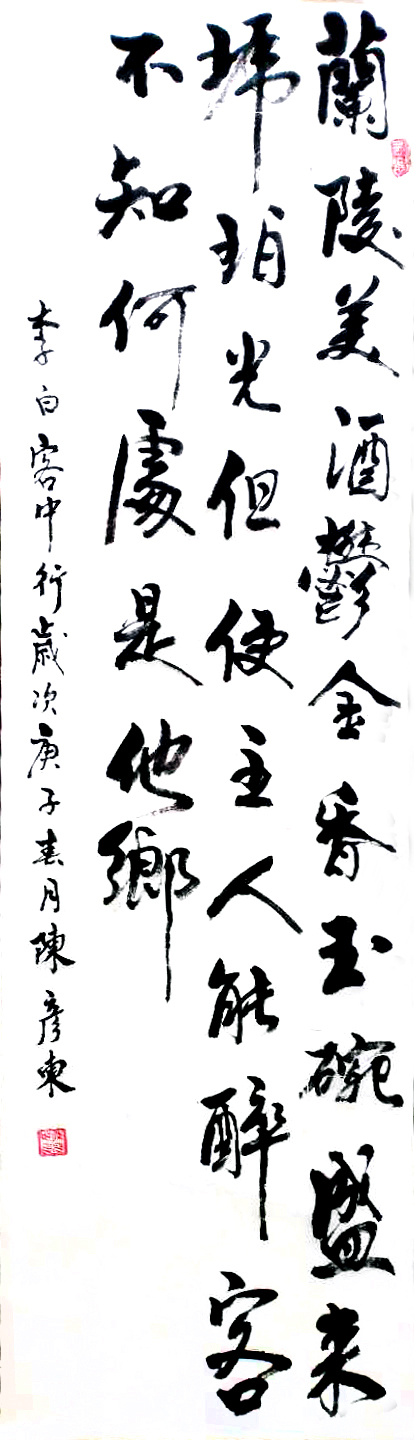 蘭陵美酒鬱金香玉碗盛来
琥珀光但使主人能醉客
不知何處是他鄉
李白客中行歲次庚子春月陳彦東